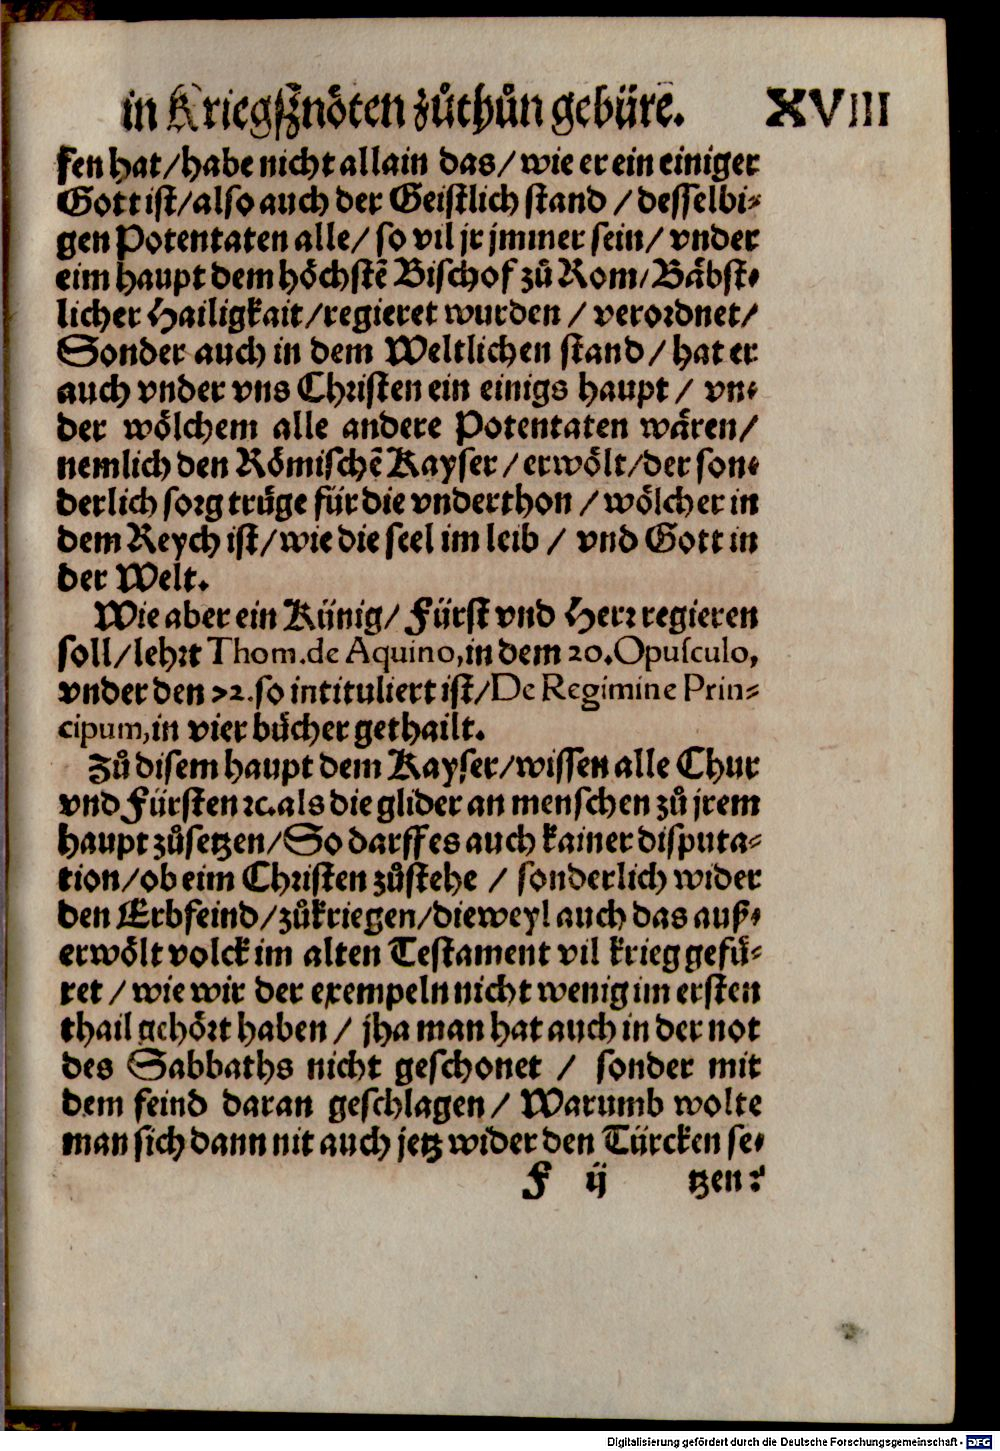 in Kriegſznöten zůthůn gebüre. XVIII
ſen hat/habe nicht allain das/wie er ein einiger
Gott iſt/alſo auch der Geiſtlich ſtand / deſſelbi-
gen Potentaten alle/ ſo vil jr jmmer ſein/ vnder
eim haupt dem höchſtē Biſchof zů Rom/Bäbſt-
licher Hailigkait/regieret wurden / verordnet/
Sonder auch in dem Weltlichen ſtand/hat er
auch vnder vns Chriſten ein einigs haupt / vn-
der wölchem alle andere Potentaten wären/
nemlich den Römiſchē Kayſer/erwölt/der ſon-
derlich ſorg trüge für die vnderthon / wölcher in
dem Reych iſt/wie die ſeel im leib / vnd Gott in
der Welt.
Wie aber ein Künig/ Fürſt vnd Herr regieren
ſoll/lehrt Thom.de Aquino,in dem 20.Opuſculo,
vnder den 72.ſo intituliert iſt/De Regimine Prin-
cipum,in vier bücher gethailt.
Zů diſem haupt dem Kayſer/wiſſen alle Chur
vnd Fürſten ꝛc.als die glider an menſchen zů jrem
haupt zůſetzen/So darff es auch kainer diſputa-
tion/ob eim Chriſten zůſtehe / ſonderlich wider
den Erbfeind/zůkriegen/dieweyl auch das auß-
erwölt volck im alten Teſtament vil krieg gefü-
ret / wie wir der exempeln nicht wenig im erſten
thail gehört haben / jha man hat auch in der not
des Sabbaths nicht geſchonet / ſonder mit
dem feind daran geſchlagen/ Warumb wolte
man ſich dann nit auch jetz wider den Türcken ſe-
F ij tzen?
Digitalisierung gefördert durch die Deutsche Forschungsgemeinschaft - DFG